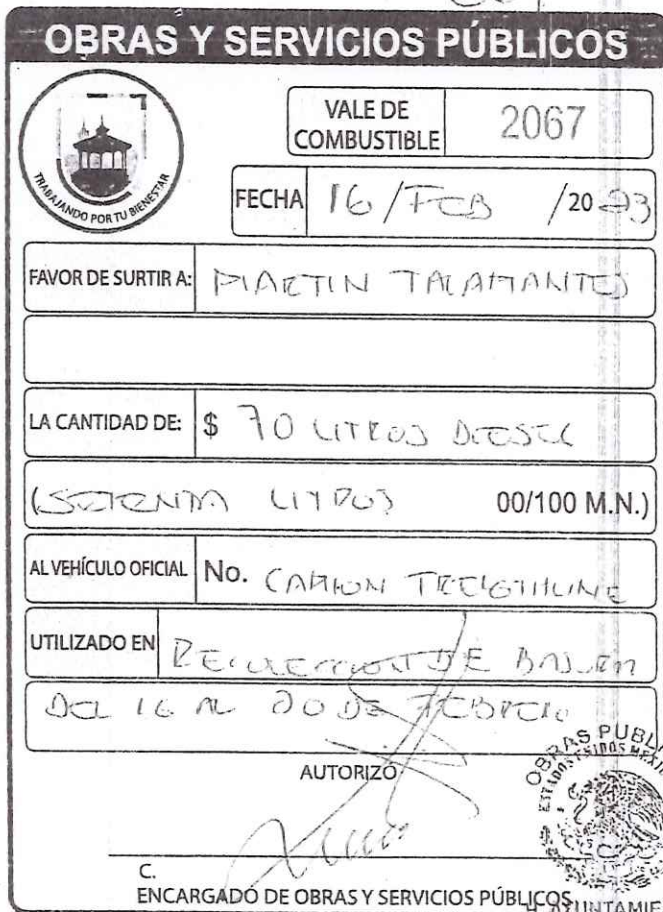 OBRAS Y SERVICIOS PÚBLICOS
TRABAJANDO POR TU BIENESTAR
VALE DE COMBUSTIBLE 2067
FECHA 16/FEB /2023
FAVOR DE SURTIR A: MARTIN TALAMANTES
LA CANTIDAD DE: $ 70 LITROS DIESEL
(SETENTA LITROS 00/100 M.N.)
AL VEHÍCULO OFICIAL No. CAMION FREIGTHLINE
UTILIZADO EN RECOLECCION DE BASURA
DEL 16 AL 20 DE FEBRERO
AUTORIZÓ
C.
ENCARGADO DE OBRAS Y SERVICIOS PÚBLICOS
OBRAS PUBLI
ESTADOS UNIDOS MEXI
H. AYUNTAMIE